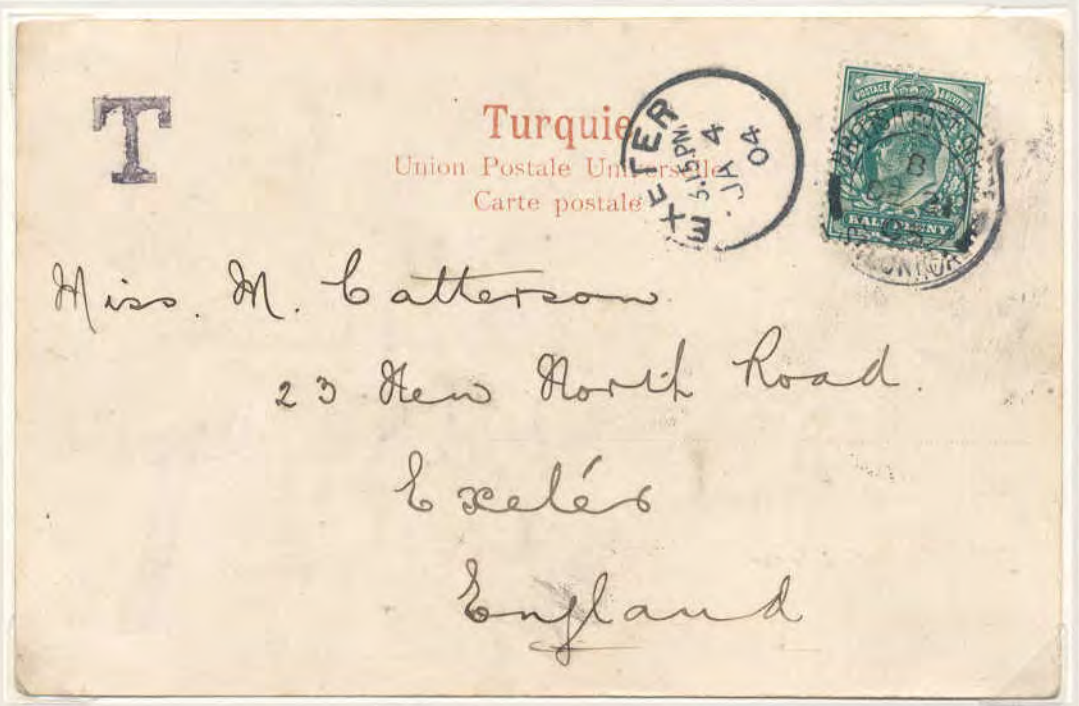 T
Turquie
Union Postale Universelle
Carte postale
EXETER
5.15PM
JA 4
04
POSTAGE & REVENUE
HALFPENNY
BRITISH POST
B
Miss. M. Catterson.
23 New North Road.
Exeter
England